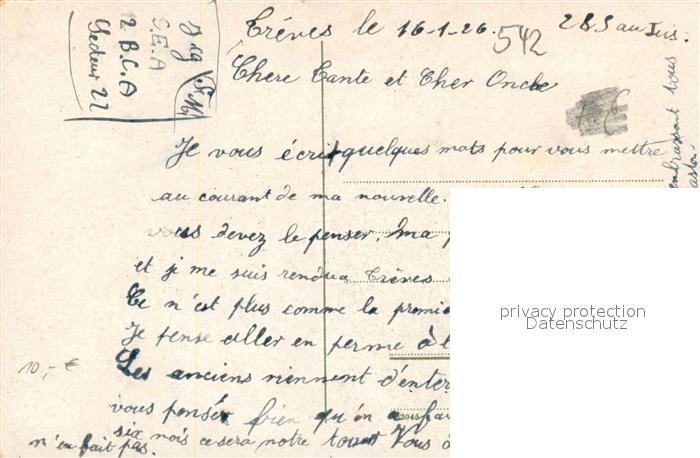 Tréves le 16-1-26.
542
283 au Jus.
Chere Tante et Cher Oncle
Je vous écrit quelques mots pour vous mettre
au courant de ma nouvelle.
vous devez le penser. Ma
et je me suis rendu a Tréves
Ce n'est plus comme la premi
Je pense aller en perme à l
Les anciens viennent d'enter
vous pensér bien qu'on a fai
six mois ce sera notre tour Vous
n'en fait pas.
S.E.A
12 B.C.A
Secteur 22
embrassant tous
10,- €
privacy protection
Datenschutz